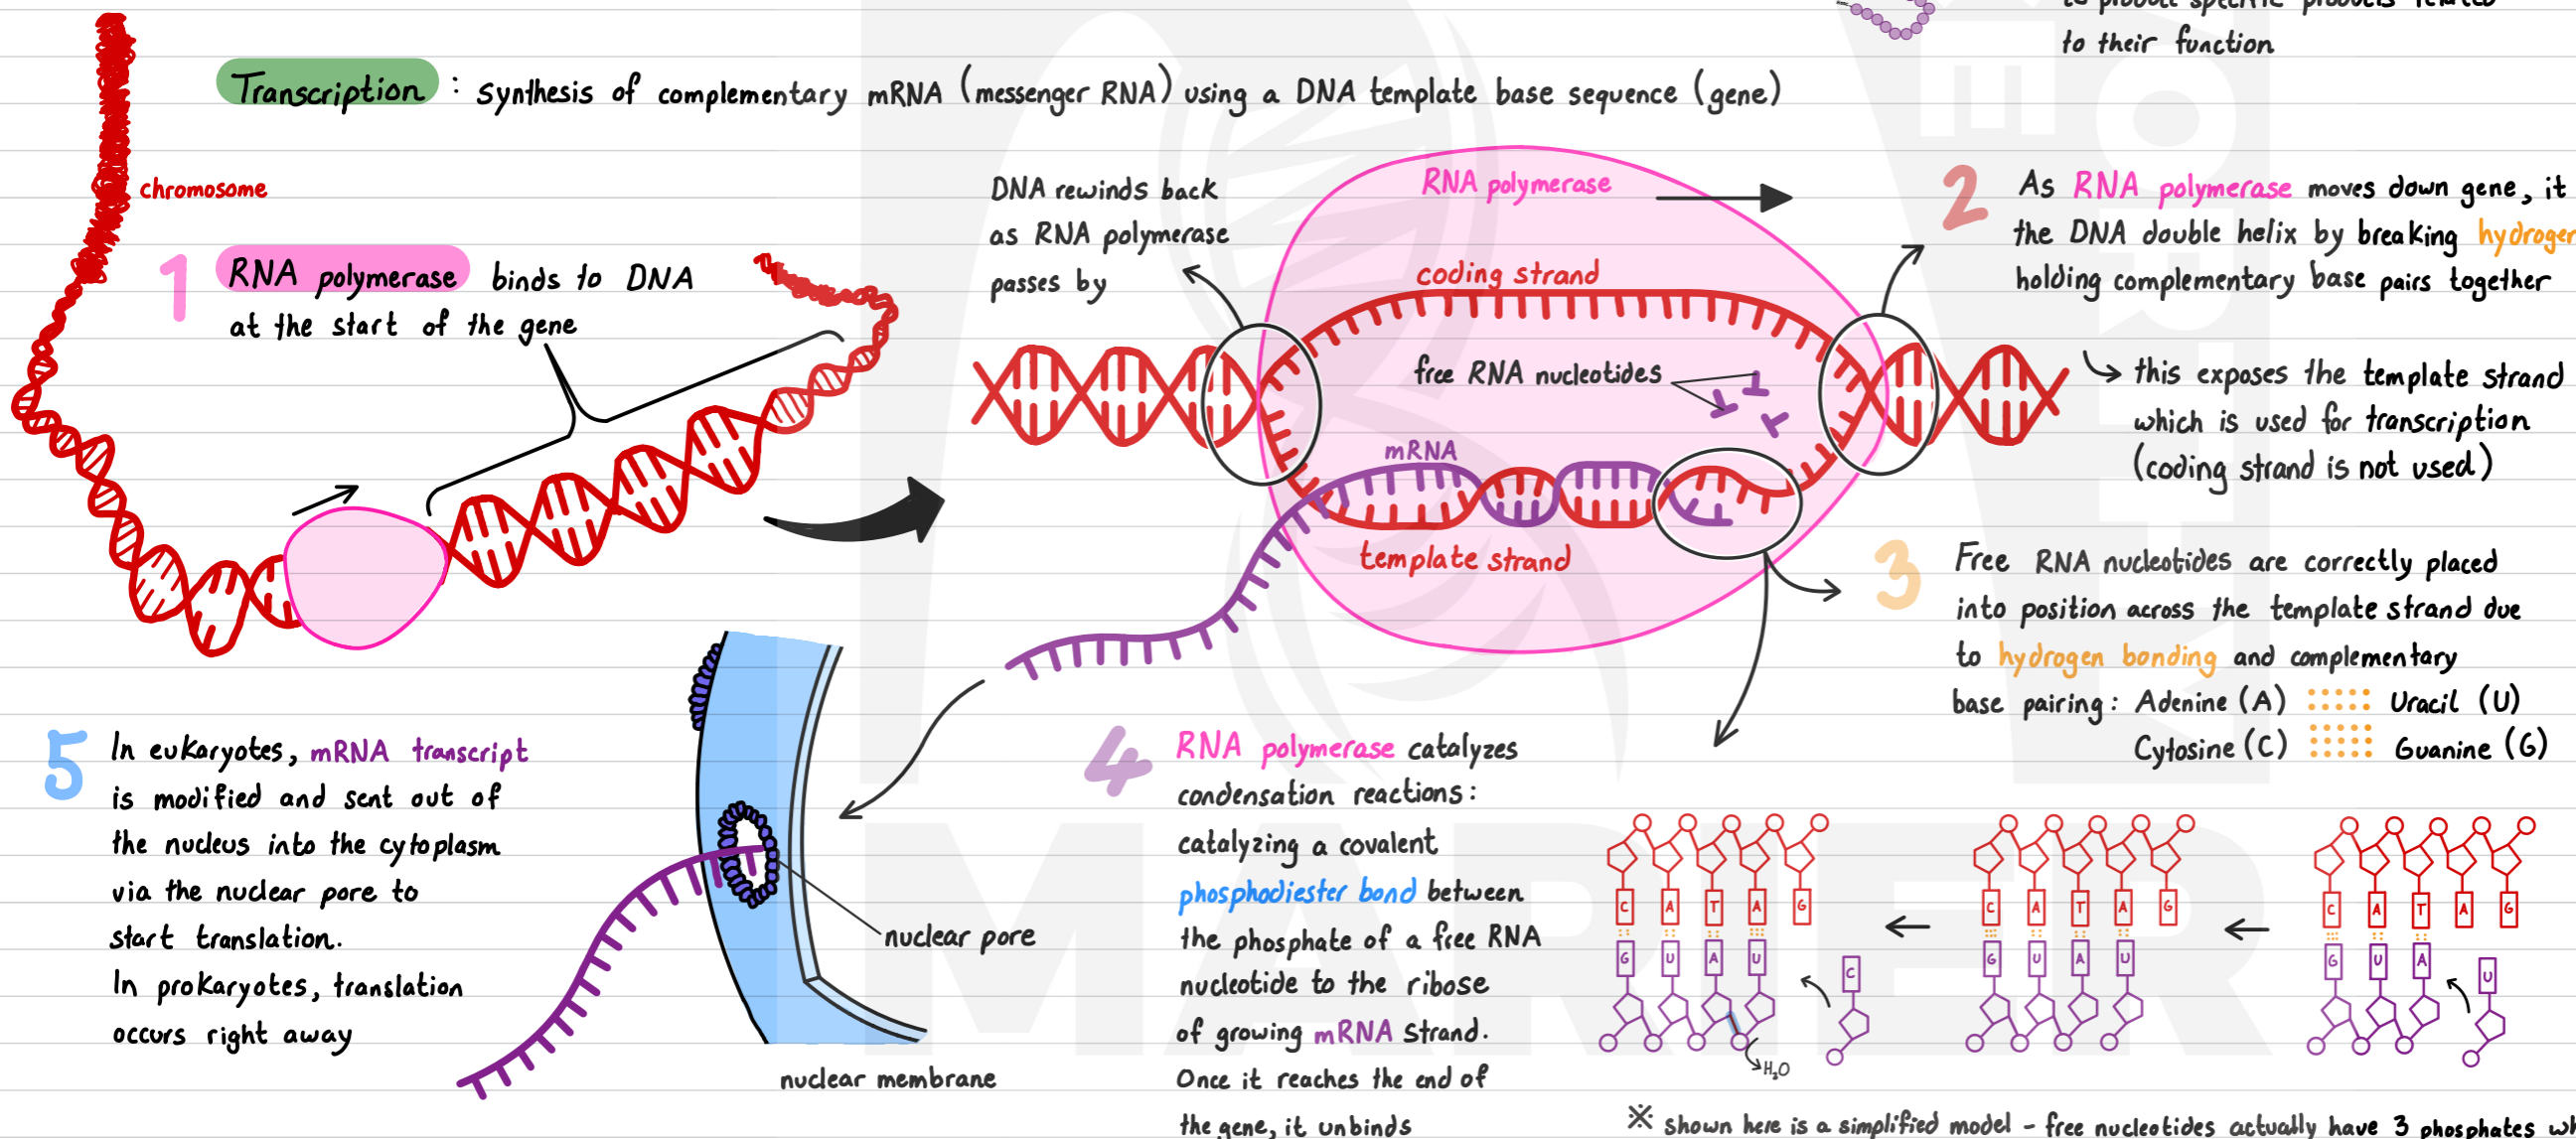 to their function
Transcription : synthesis of complementary mRNA (messenger RNA) using a DNA template base sequence (gene)
chromosome
1 RNA polymerase binds to DNA
at the start of the gene
DNA rewinds back
as RNA polymerase
passes by
RNA polymerase
coding strand
free RNA nucleotides
mRNA
template strand
2 As RNA polymerase moves down gene, it
the DNA double helix by breaking hydrogen
holding complementary base pairs together
this exposes the template strand
which is used for transcription
(coding strand is not used)
3 Free RNA nucleotides are correctly placed
into position across the template strand due
to hydrogen bonding and complementary
base pairing: Adenine (A) Uracil (U)
Cytosine (C) Guanine (G)
4 RNA polymerase catalyzes
condensation reactions:
catalyzing a covalent
phosphodiester bond between
the phosphate of a free RNA
nucleotide to the ribose
of growing mRNA strand.
Once it reaches the end of
the gene, it unbinds
C A T A G
G U A U
C
H₂O
C A T A G
G U A U
C A T A G
G U A
U
※ shown here is a simplified model - free nucleotides actually have 3 phosphates
5 In eukaryotes, mRNA transcript
is modified and sent out of
the nucleus into the cytoplasm
via the nuclear pore to
start translation.
In prokaryotes, translation
occurs right away
nuclear pore
nuclear membrane
MARTER